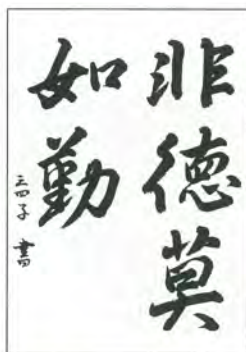 非徳莫
如勤
三四子 書